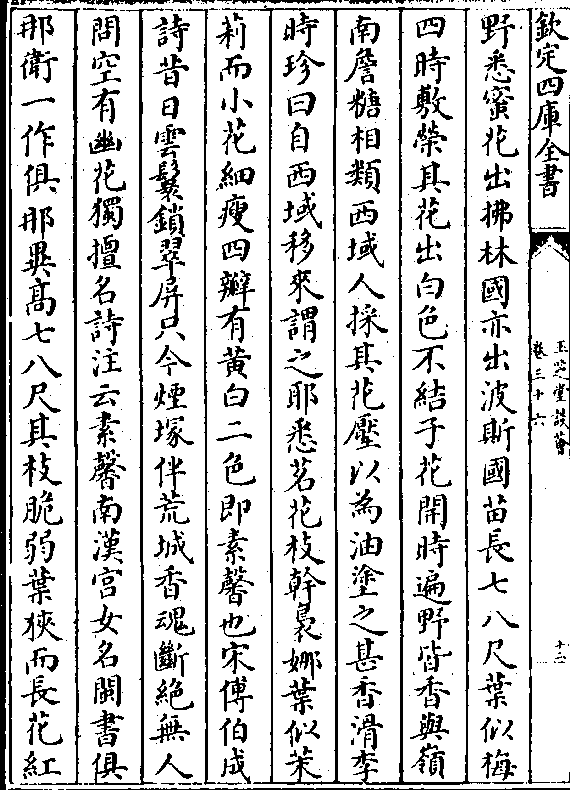 欽定四庫全書
玉芝堂談薈
卷三十六
十二
野悉蜜花出拂林國亦出波斯國苗長七八尺葉似梅
四時敷榮其花出白色不結子花開時遍野皆香與嶺
南詹糖相類西域人採其花壓以為油塗之甚香滑李
時珍曰自西域移來謂之耶悉茗花枝幹裊娜葉似茉
莉而小花細瘦四瓣有黃白二色即素馨也宋傅伯成
詩昔日雲鬟鎖翠屏只今煙塚伴荒城香魂斷絶無人
問空有幽花獨擅名詩注云素馨南漢宫女名閩書俱
那衛一作俱那異髙七八尺其枝脆弱葉狹而長花紅